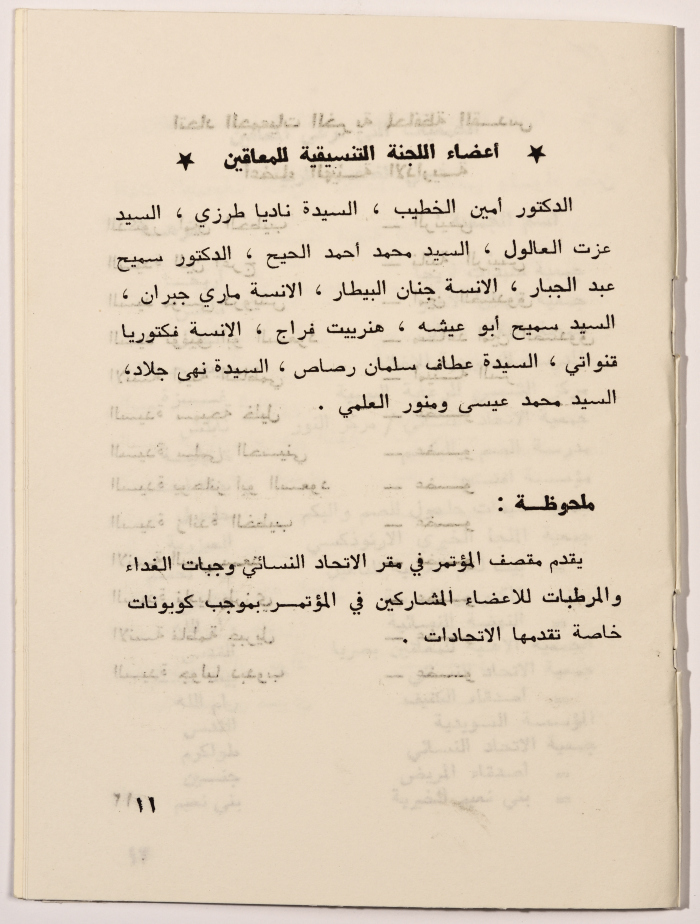 ★ أعضاء اللجنة التنسيقية للمعاقين ★
الدكتور أمين الخطيب ، السيدة ناديا طرزي ، السيد
عزت العالول ، السيد محمد أحمد الحيح ، الدكتور سميح
عبد الجبار ، الانسة جنان البيطار ، الانسة ماري جبران ،
السيد سميح أبو عيشه ، هنرييت فراج ، الانسة فكتوريا
قنواتي ، السيدة عطاف سلمان رصاص ، السيدة نهى جلاد،
السيد محمد عيسى ومنور العلمي .
ملحوظـة :
يقدم مقصف المؤتمر في مقر الاتحاد النسائي وجبات الغداء
والمرطبات للاعضاء المشاركين في المؤتمـر بموجب كوبونات
خاصة تقدمها الاتحادات .
١١